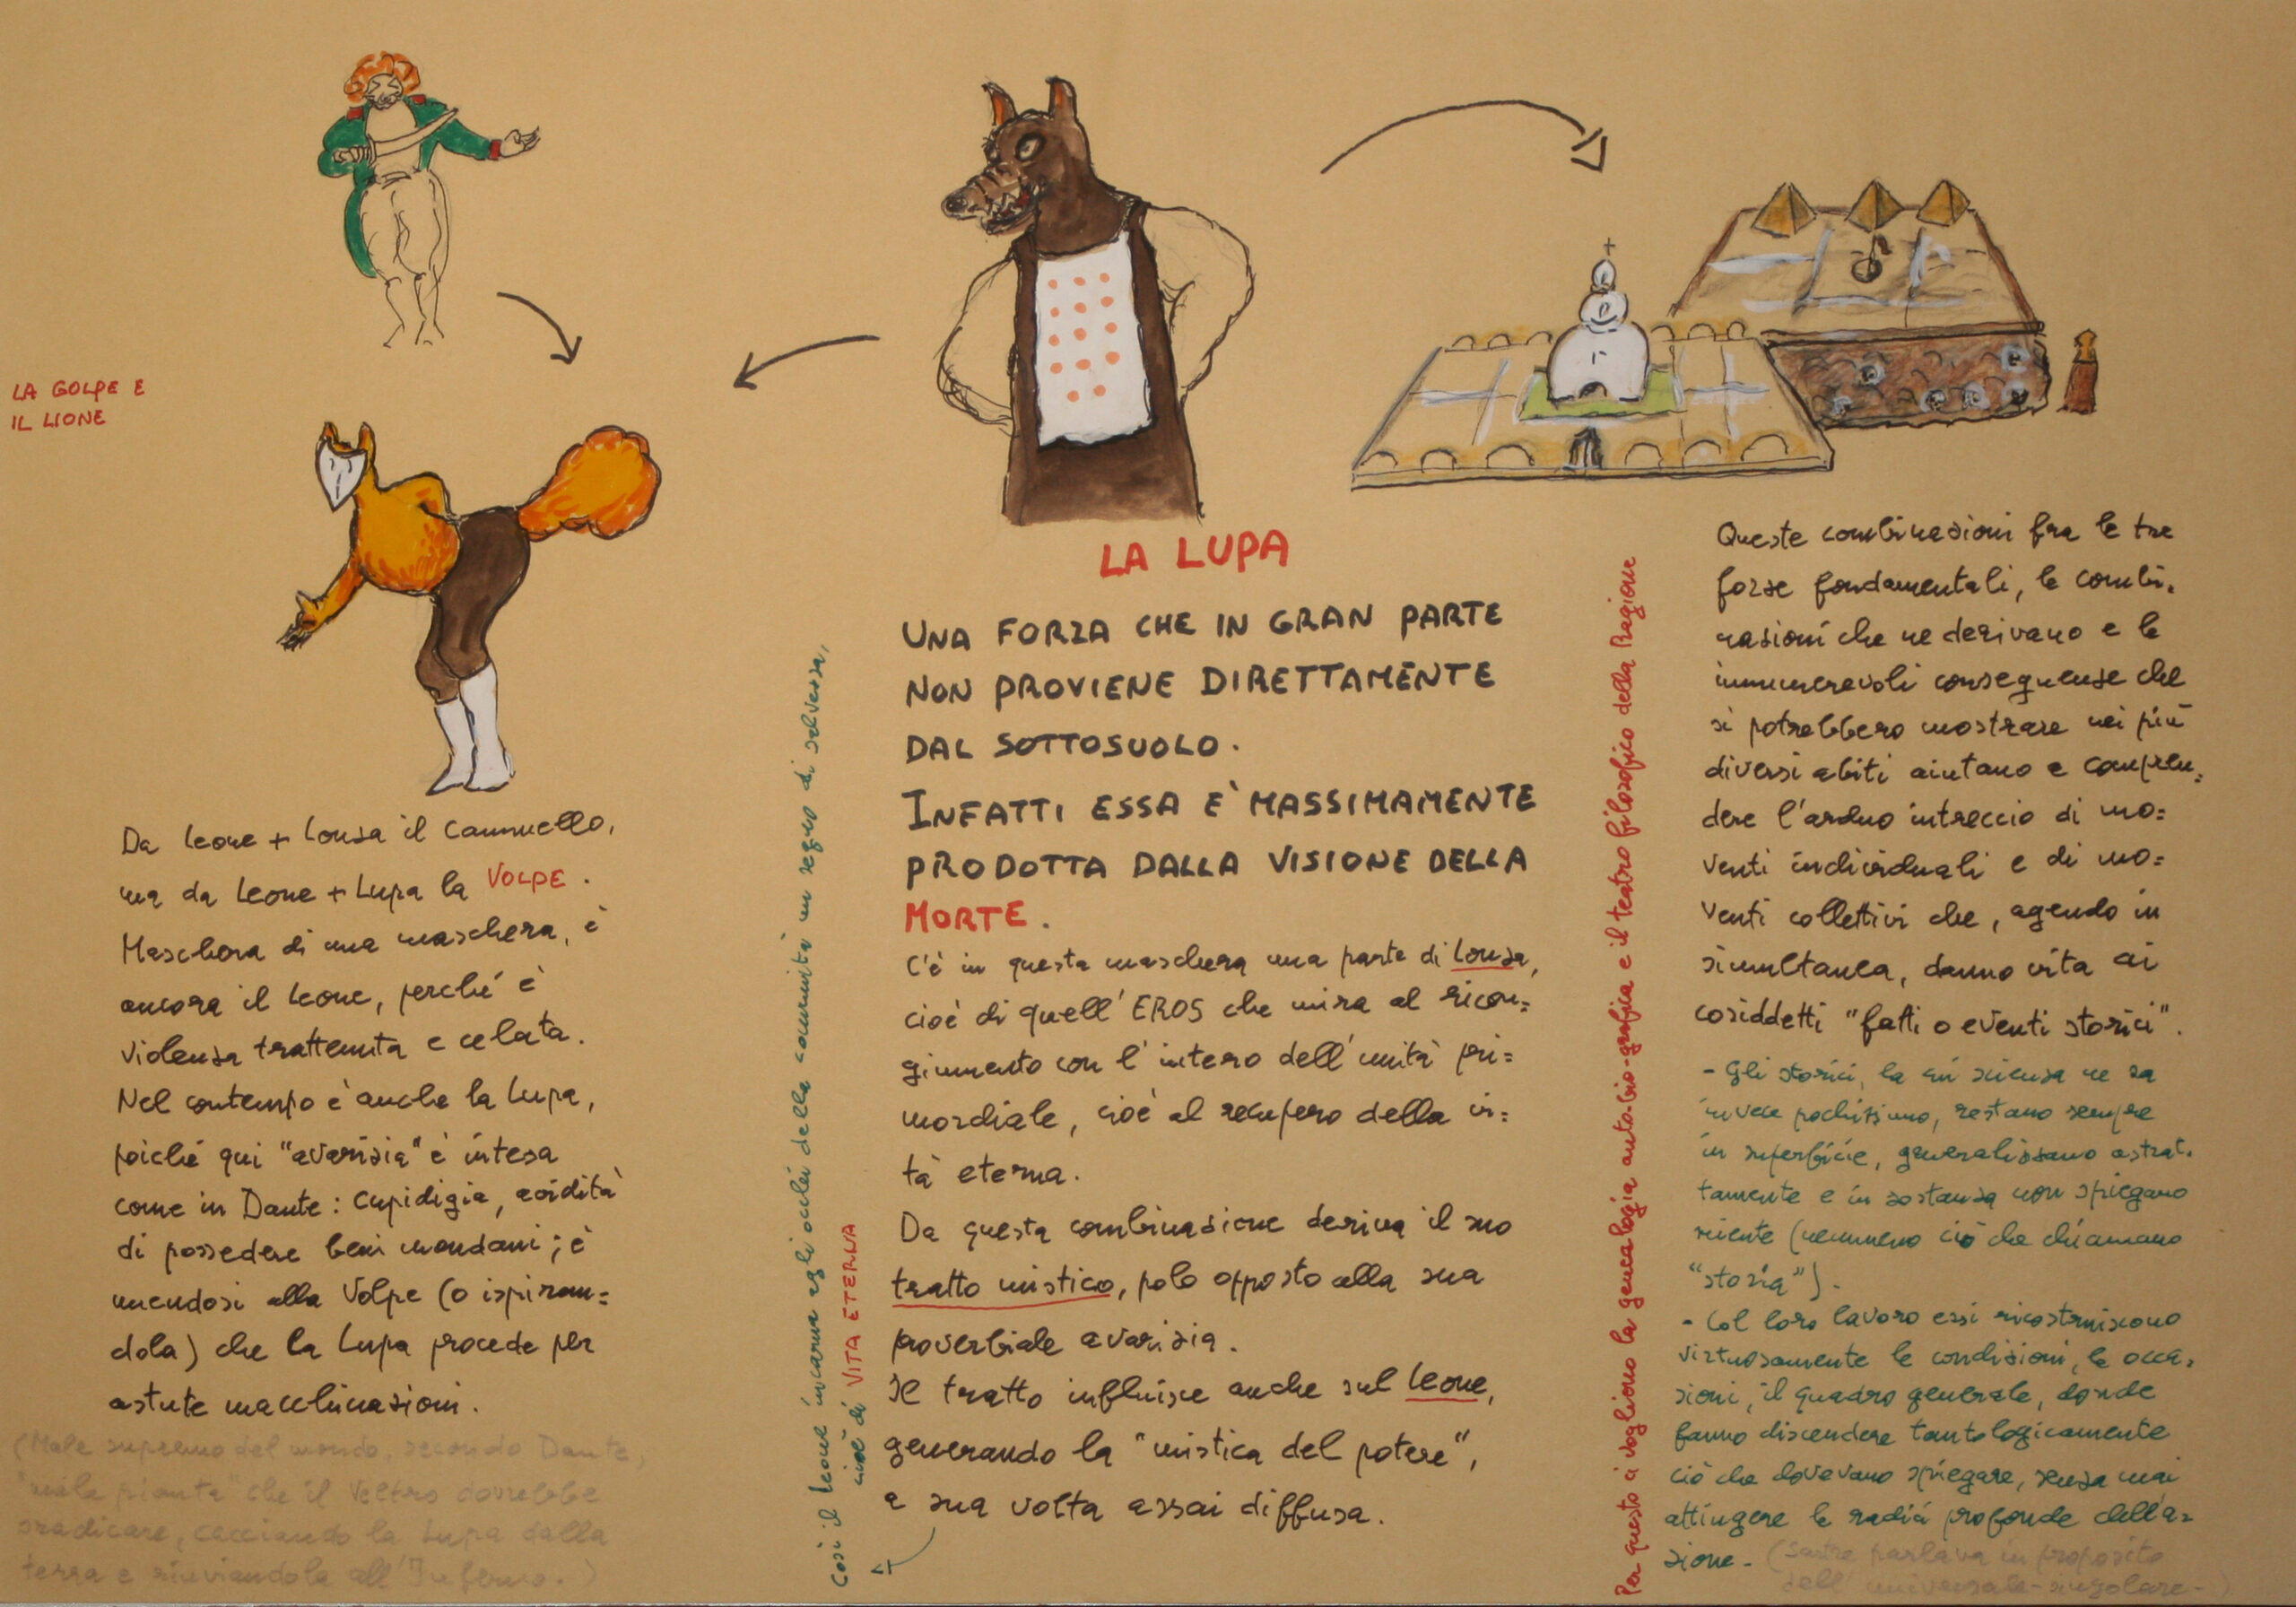 LA GOLPE E
IL LIONE
Da Leone + Lonza il Cammello,
ma da Leone + Lupa la VOLPE.
Maschera di una maschera, è
ancora il Leone, perché è
violenza trattenuta e celata.
Nel contempo è anche la Lupa,
poiché qui "avarizia" è intesa
come in Dante: cupidigia, avidità
di possedere beni mondani; è
unendosi alla Volpe (o ispiran=
dola) che la Lupa procede per
astute macchinazioni.
(Male supremo del mondo, secondo Dante,
"mala pianta" che il Veltro dovrebbe
sradicare, cacciando la Lupa dalla
terra e rinviandola all'Inferno.)
Così il Leone incarna agli occhi della comunità un segno di salvezza,
cioè di VITA ETERNA
LA LUPA
UNA FORZA CHE IN GRAN PARTE
NON PROVIENE DIRETTAMENTE
DAL SOTTOSUOLO.
INFATTI ESSA E' MASSIMAMENTE
PRODOTTA DALLA VISIONE DELLA
MORTE.
C'è in questa maschera una parte di Lonza,
cioè di quell'EROS che mira al ricon=
giumento con l'intero dell'unità pri=
mordiale, cioè al recupero della vi=
ta eterna.
Da questa combinazione deriva il suo
tratto mistico, polo opposto alla sua
proverbiale avarizia.
Il tratto influisce anche sul Leone,
generando la "mistica del potere",
a sua volta assai diffusa.
Per questo ci vogliono la genealogia auto-bio-grafica e il teatro filosofico della Ragione
Queste combinazioni fra le tre
forze fondamentali, le combi-
nazioni che ne derivano e le
innumerevoli conseguenze che
si potrebbero mostrare nei più
diversi abiti aiutano a compren=
dere l'arduo intreccio di mo=
venti individuali e di mo=
venti collettivi che, agendo in
simultanea, danno vita ai
cosiddetti "fatti o eventi storici".
- Gli storici, la cui scienza ne sa
invece pochissimo, restano sempre
in superficie, generalizzano astrat-
tamente e in sostanza non spiegano
niente (nemmeno ciò che chiamano
"storia").
- Col loro lavoro essi ricostruiscono
virtuosamente le condizioni, le occa-
sioni, il quadro generale, donde
fanno discendere tautologicamente
ciò che dovevano spiegare, senza mai
attingere le radici profonde dell'a=
zione - (Sartre parlava in proposito
dell'universale-singolare-)